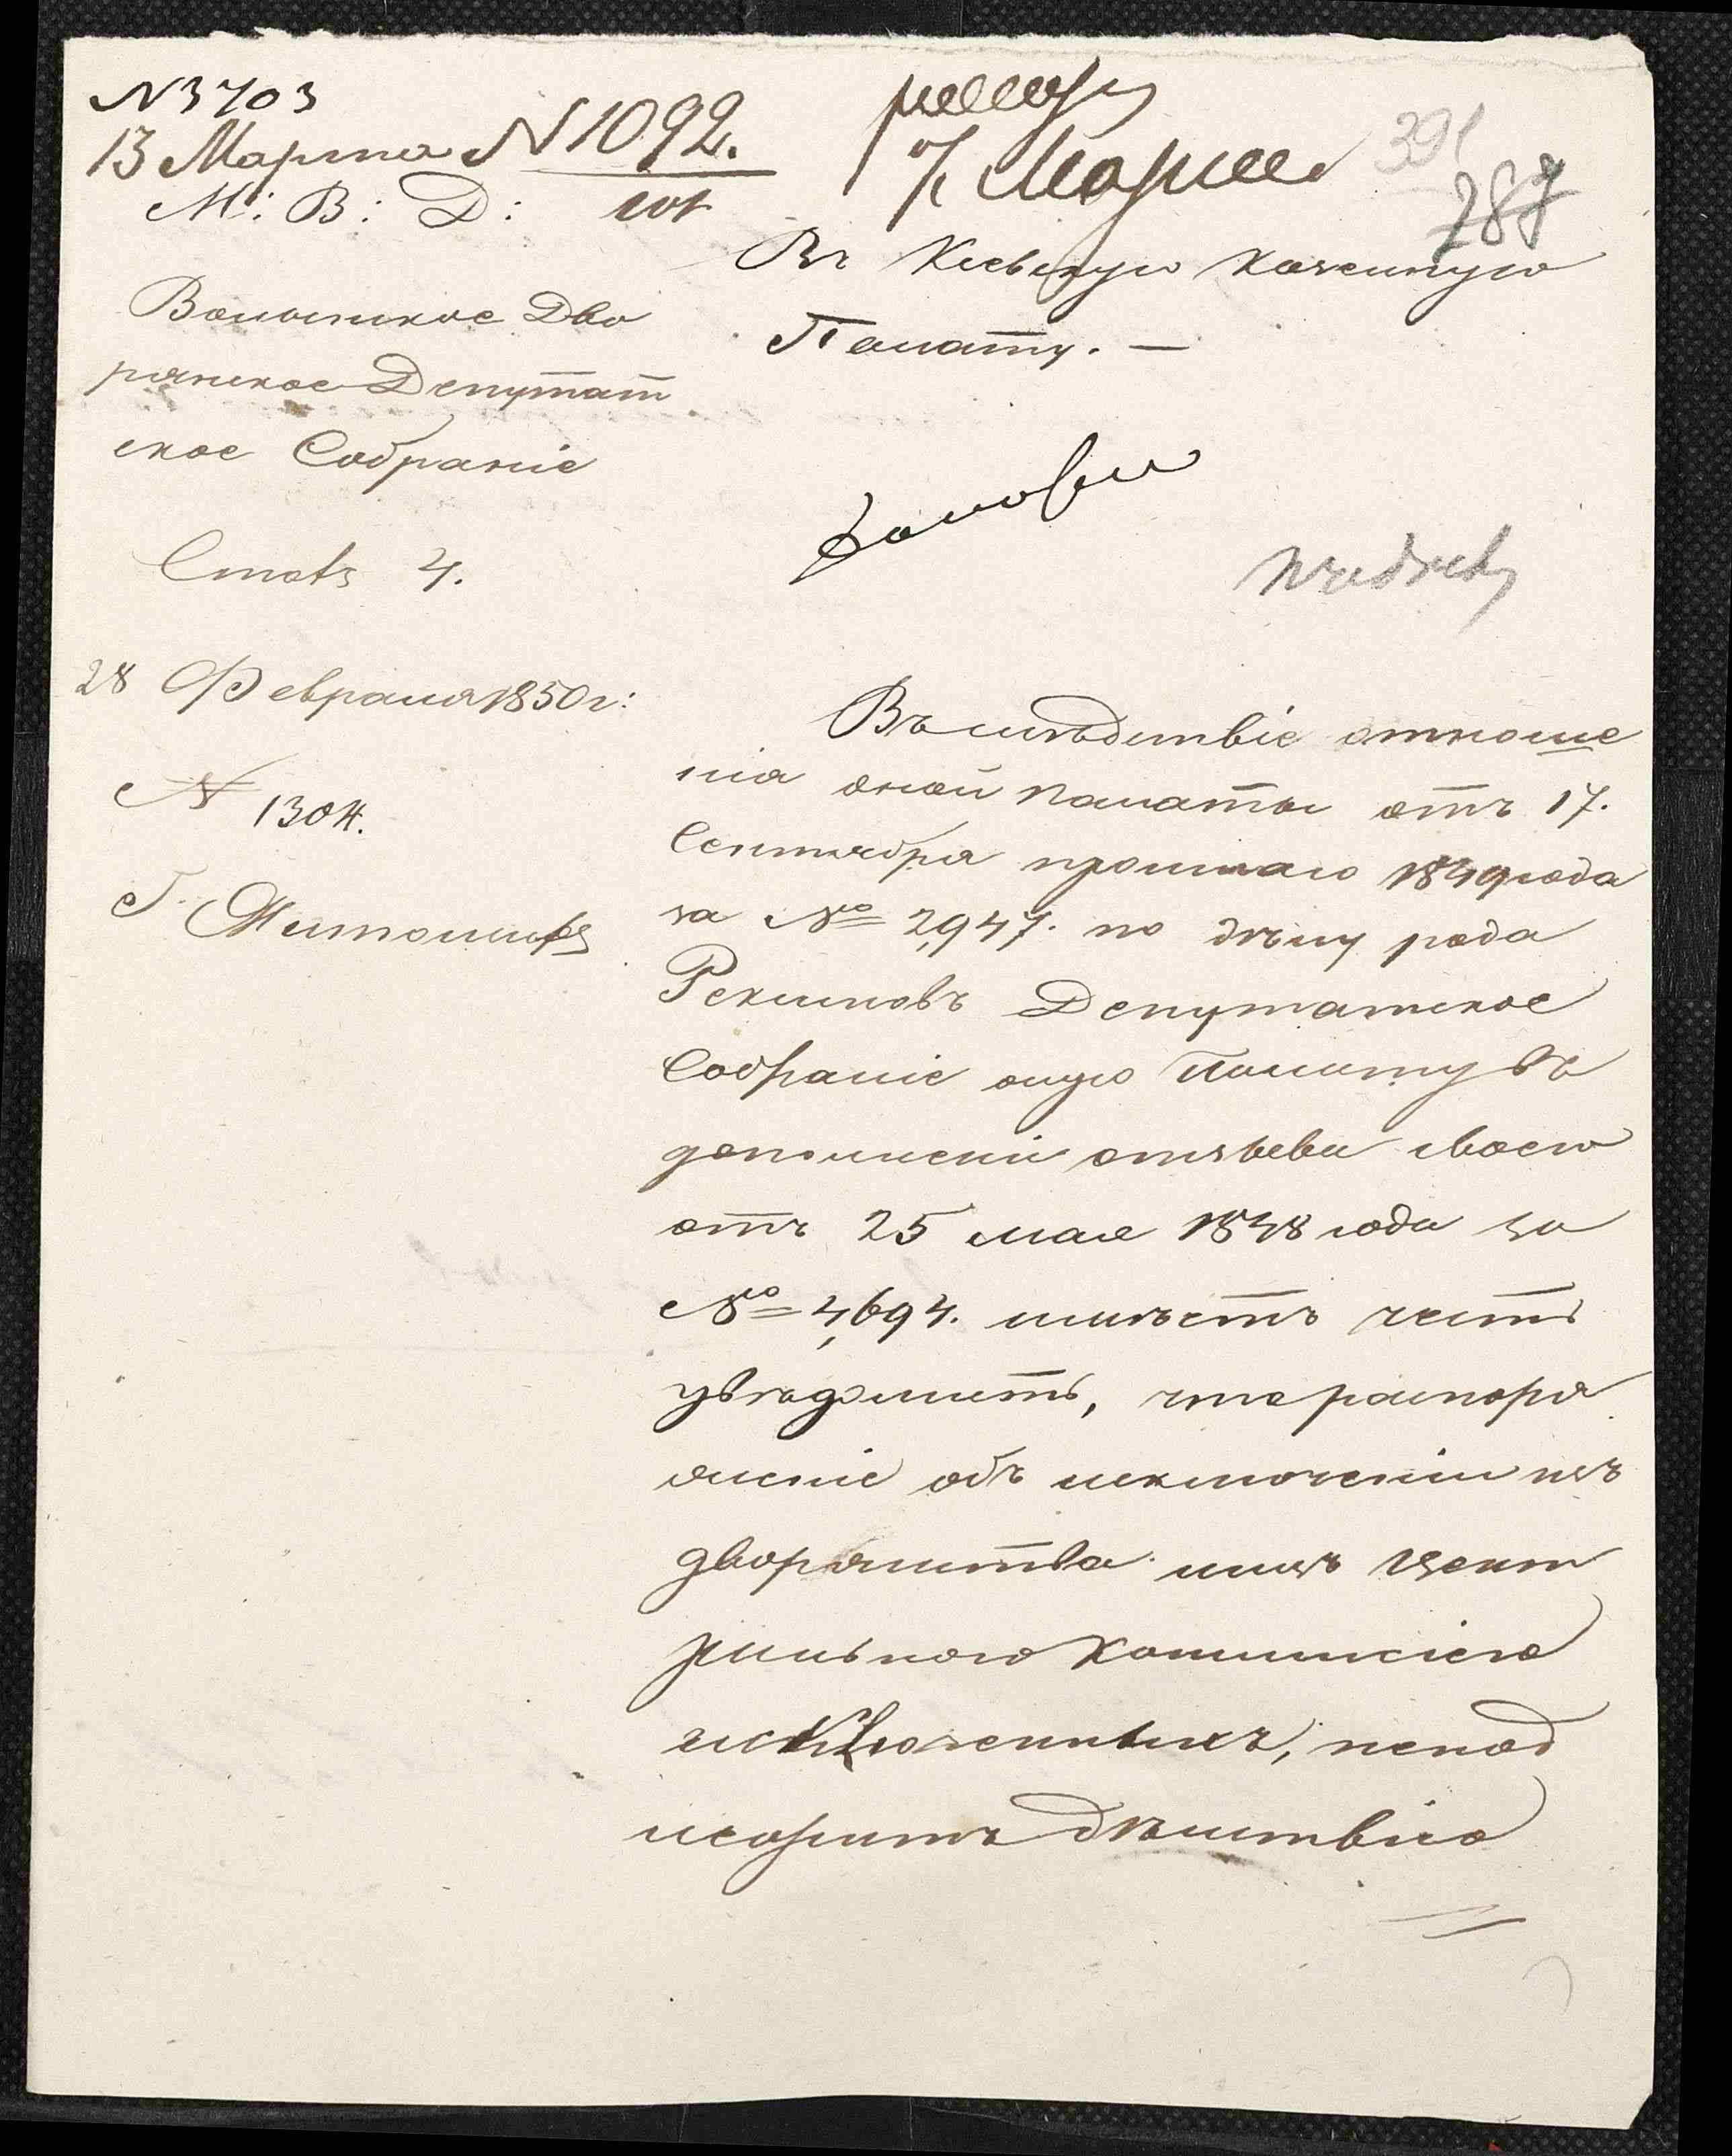 N 3703
13 Марта N 1092.
М: В: Д:
7 Марта
391
288
Въ Кіевскую Казенную
Палату. —
Волынское Дво
рянское Депутат
ское Собраніе
Столъ 4.
28 Февраля 1850 г:
№ 1304.
Г. Житомиръ
Въ слѣдствіе отноше
нія оной Палаты отъ 17.
Сентября прошлаго 1849 года
за № 2,947. по дѣлу рода
Депутатское
Собраніе оную Палату въ
дополненіи отзыва своего
отъ 25 мая 1848 года за
№ 4,694. имѣетъ честь
увѣдомить, что распоря
женіе объ исключеніи изъ
дворянства лицъ Цент
ральною Коммисіею
исключенныхъ, непод
лежитъ дѣйствію